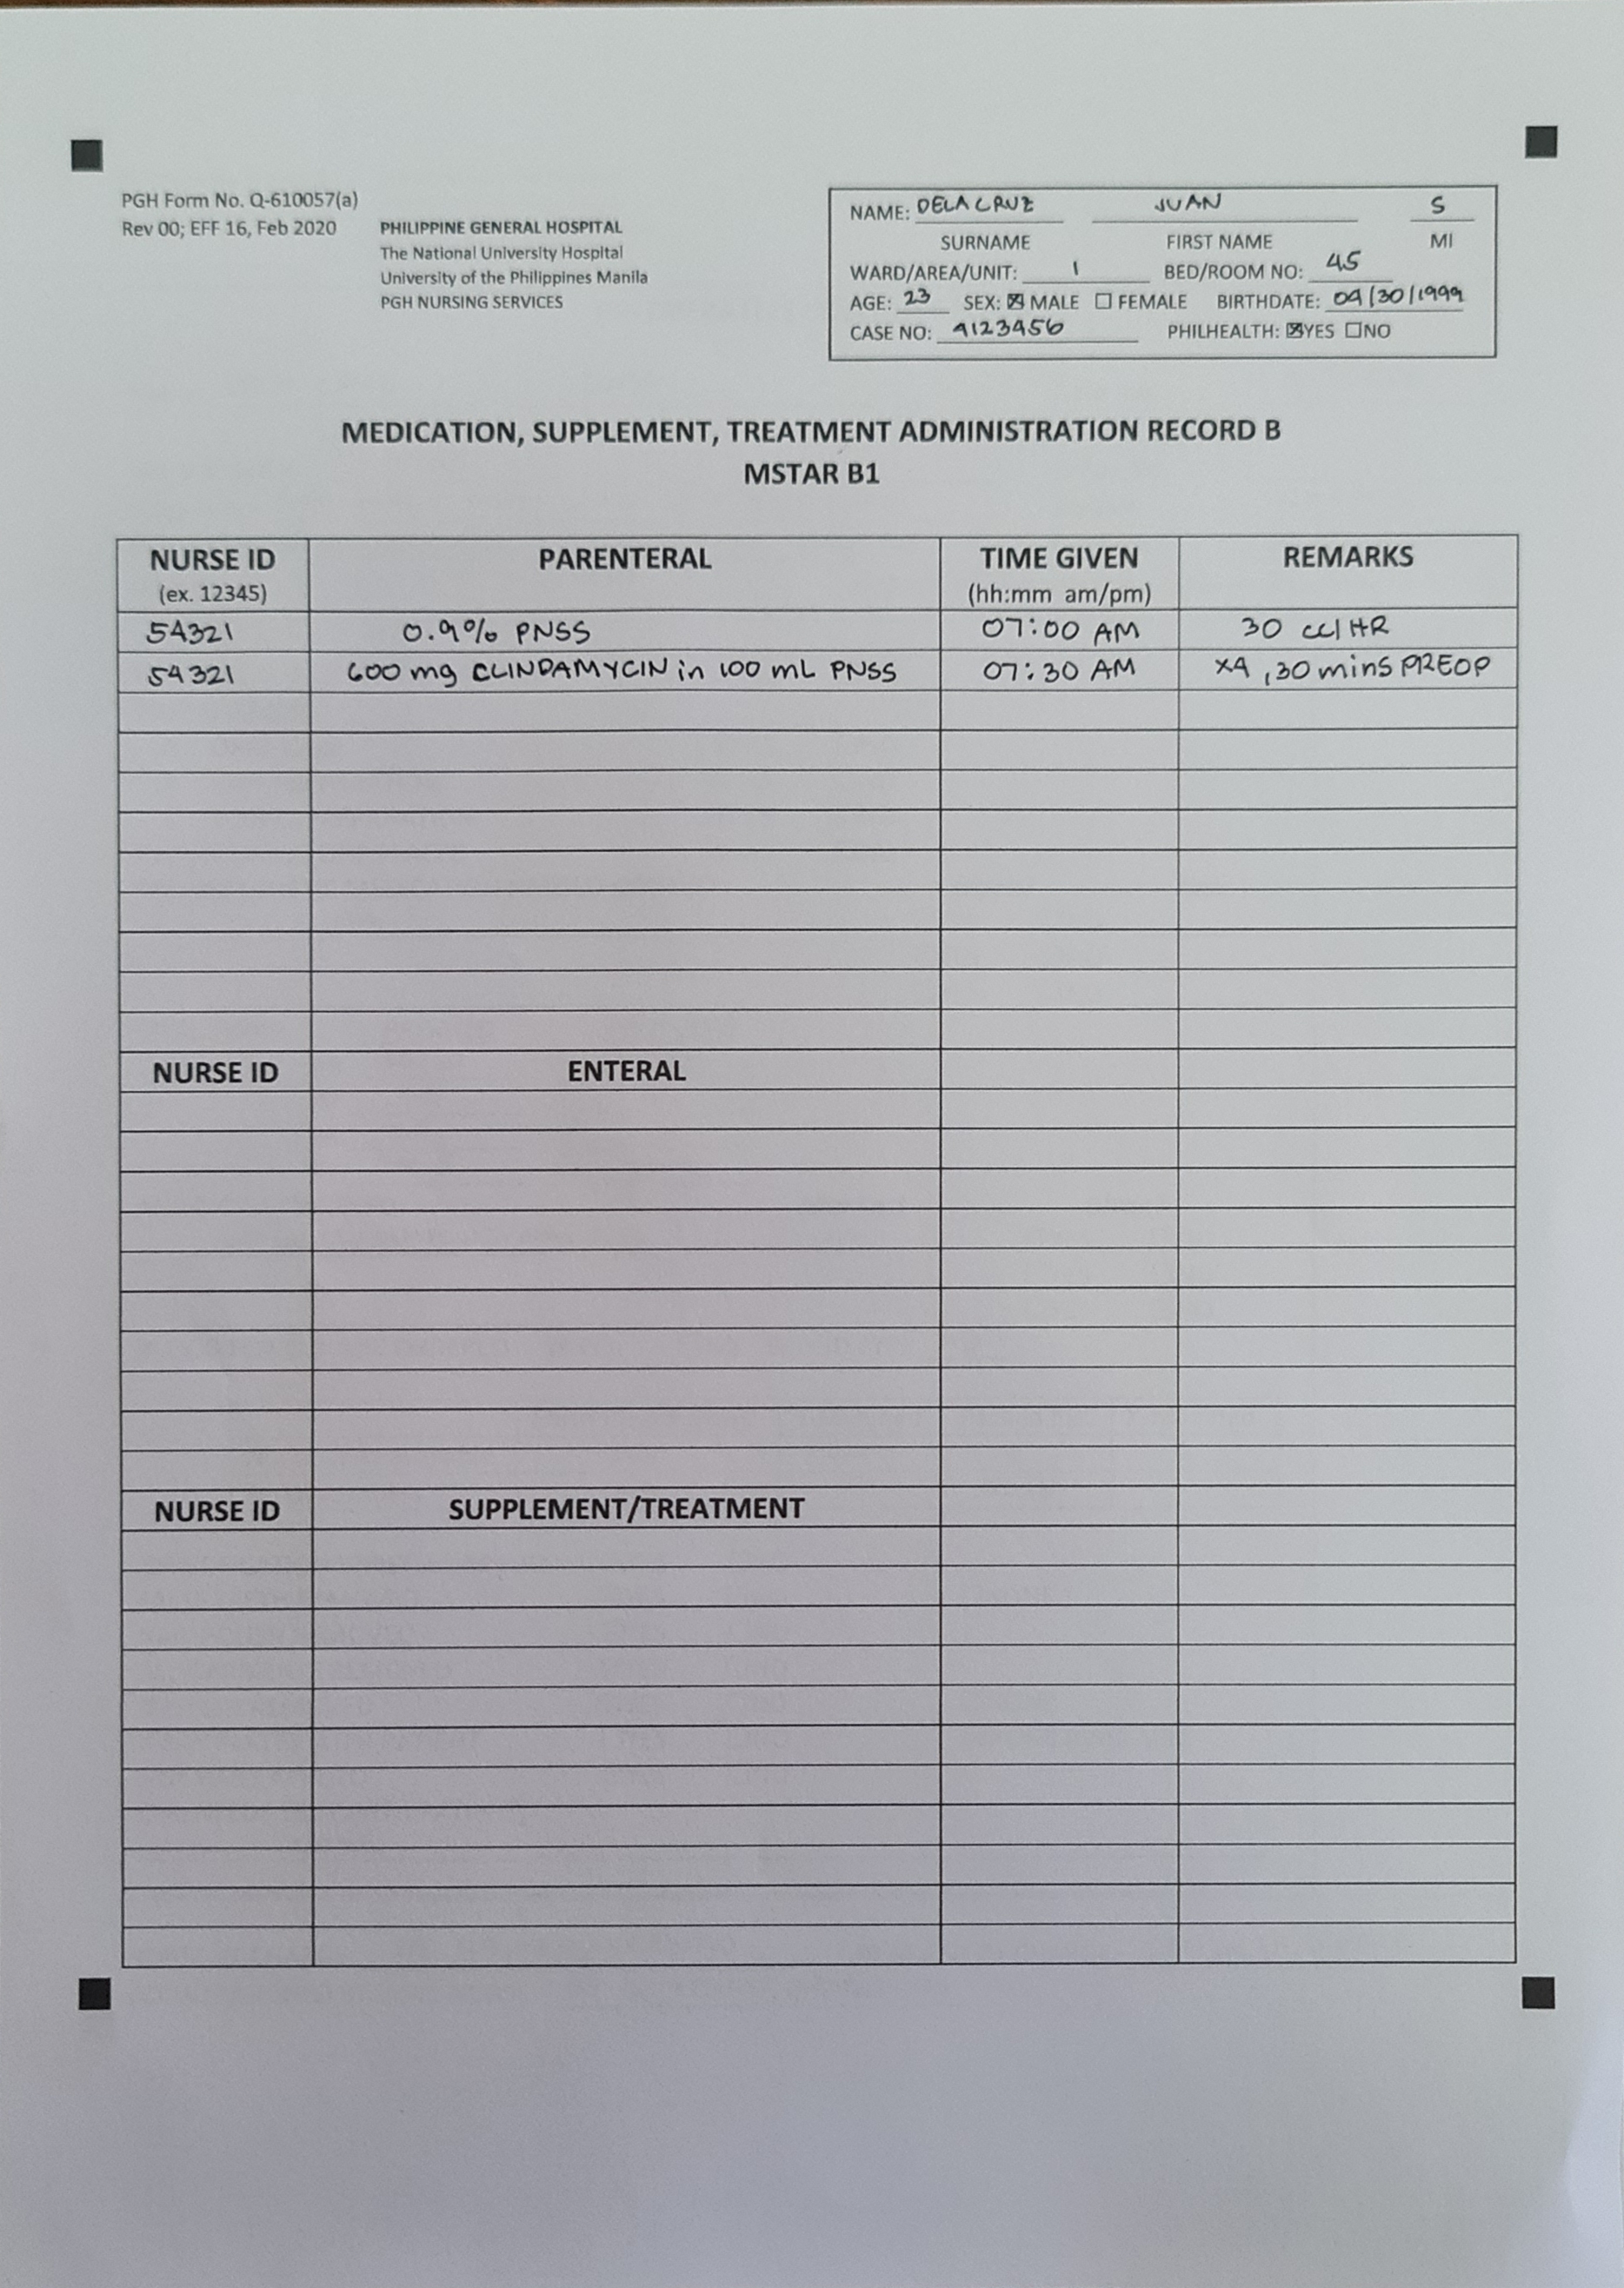 PGH Form No. Q-610057(a)
Rev 00; EFF 16, Feb 2020
PHILIPPINE GENERAL HOSPITAL
The National University Hospital
University of the Philippines Manila
PGH NURSING SERVICES
NAME: DELA CRUZ JUAN S
SURNAME FIRST NAME MI
WARD/AREA/UNIT: 1 BED/ROOM NO: 45
AGE: 23 SEX: ☒ MALE ☐ FEMALE BIRTHDATE: 04/30/1999
CASE NO: 4123456 PHILHEALTH: ☒YES ☐NO
MEDICATION, SUPPLEMENT, TREATMENT ADMINISTRATION RECORD B
MSTAR B1
NURSE ID PARENTERAL TIME GIVEN REMARKS
(ex. 12345) (hh:mm am/pm)
54321 0.9% PNSS 07:00 AM 30 cc/HR
54321 600 mg CLINDAMYCIN in 100 mL PNSS 07:30 AM x4, 30 mins PREOP
NURSE ID ENTERAL
NURSE ID SUPPLEMENT/TREATMENT